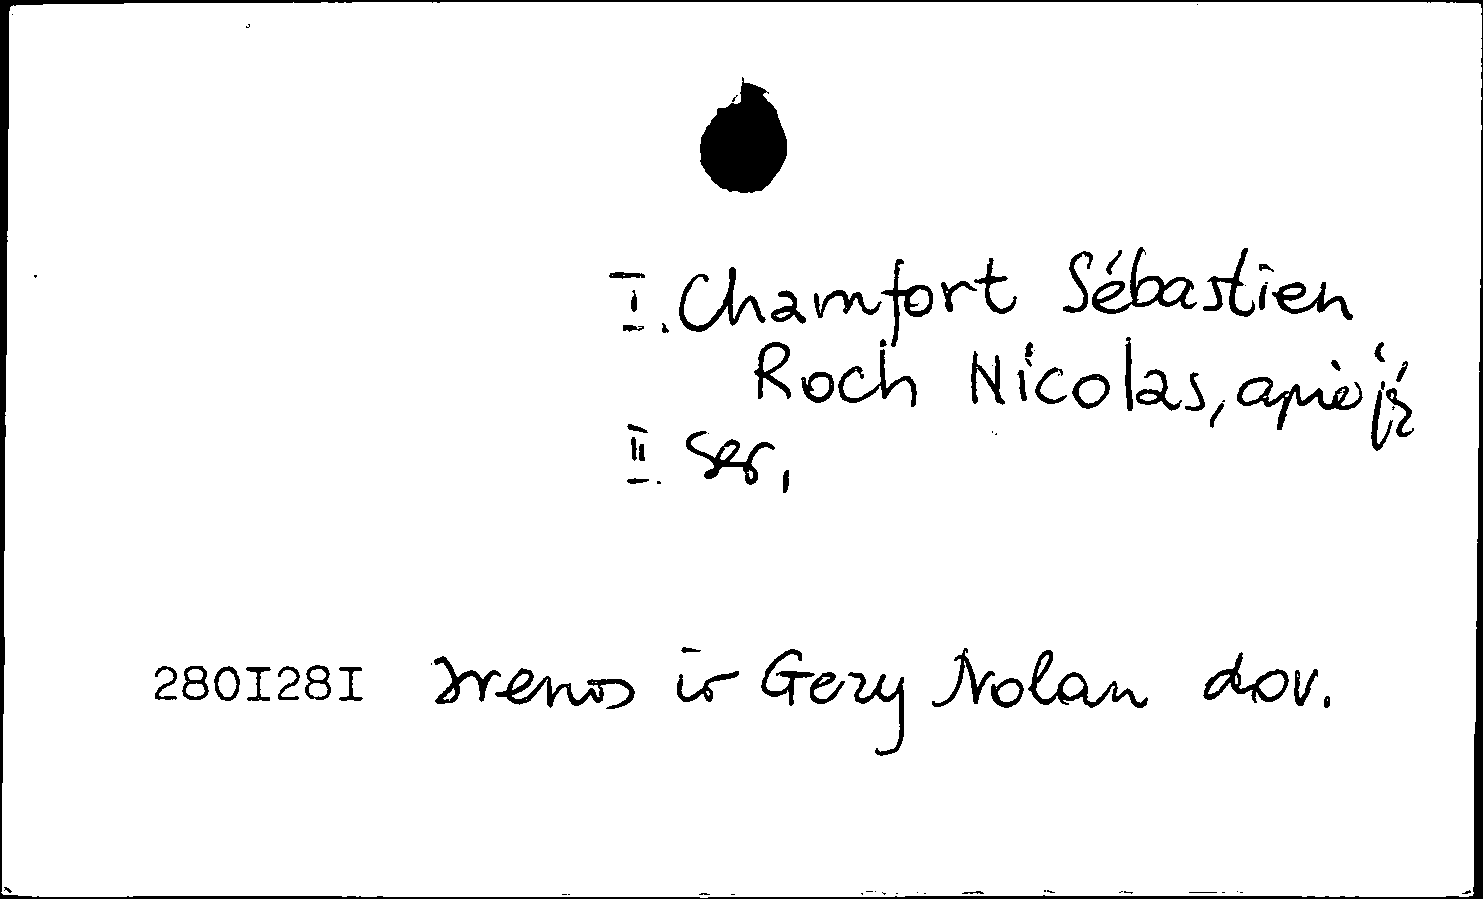 I. Chamfort Sébastien
Roch Nicolas, apie jį
II. Ser,
280I28I Irenos ir Gery Nolan dov.